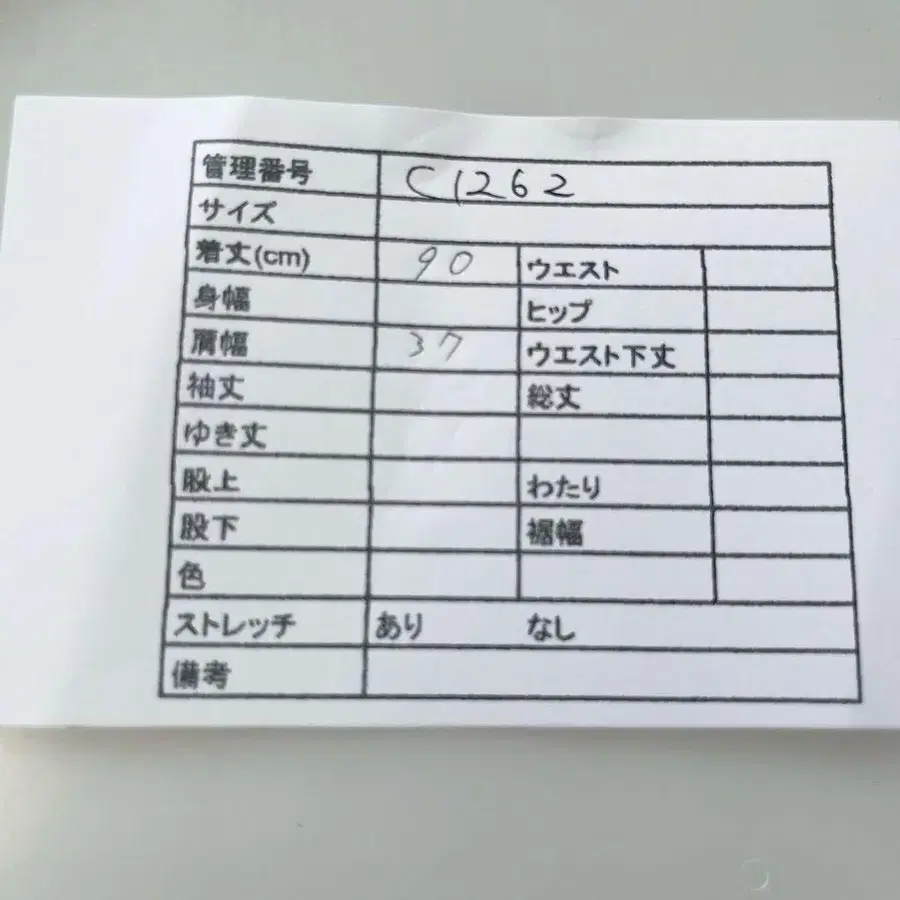 管理番号 C1262
サイズ
着丈(cm) 90 ウエスト
身幅 ヒップ
肩幅 37 ウエスト下丈
袖丈 総丈
ゆき丈
股上 わたり
股下 裾幅
色
ストレッチ あり なし
備考